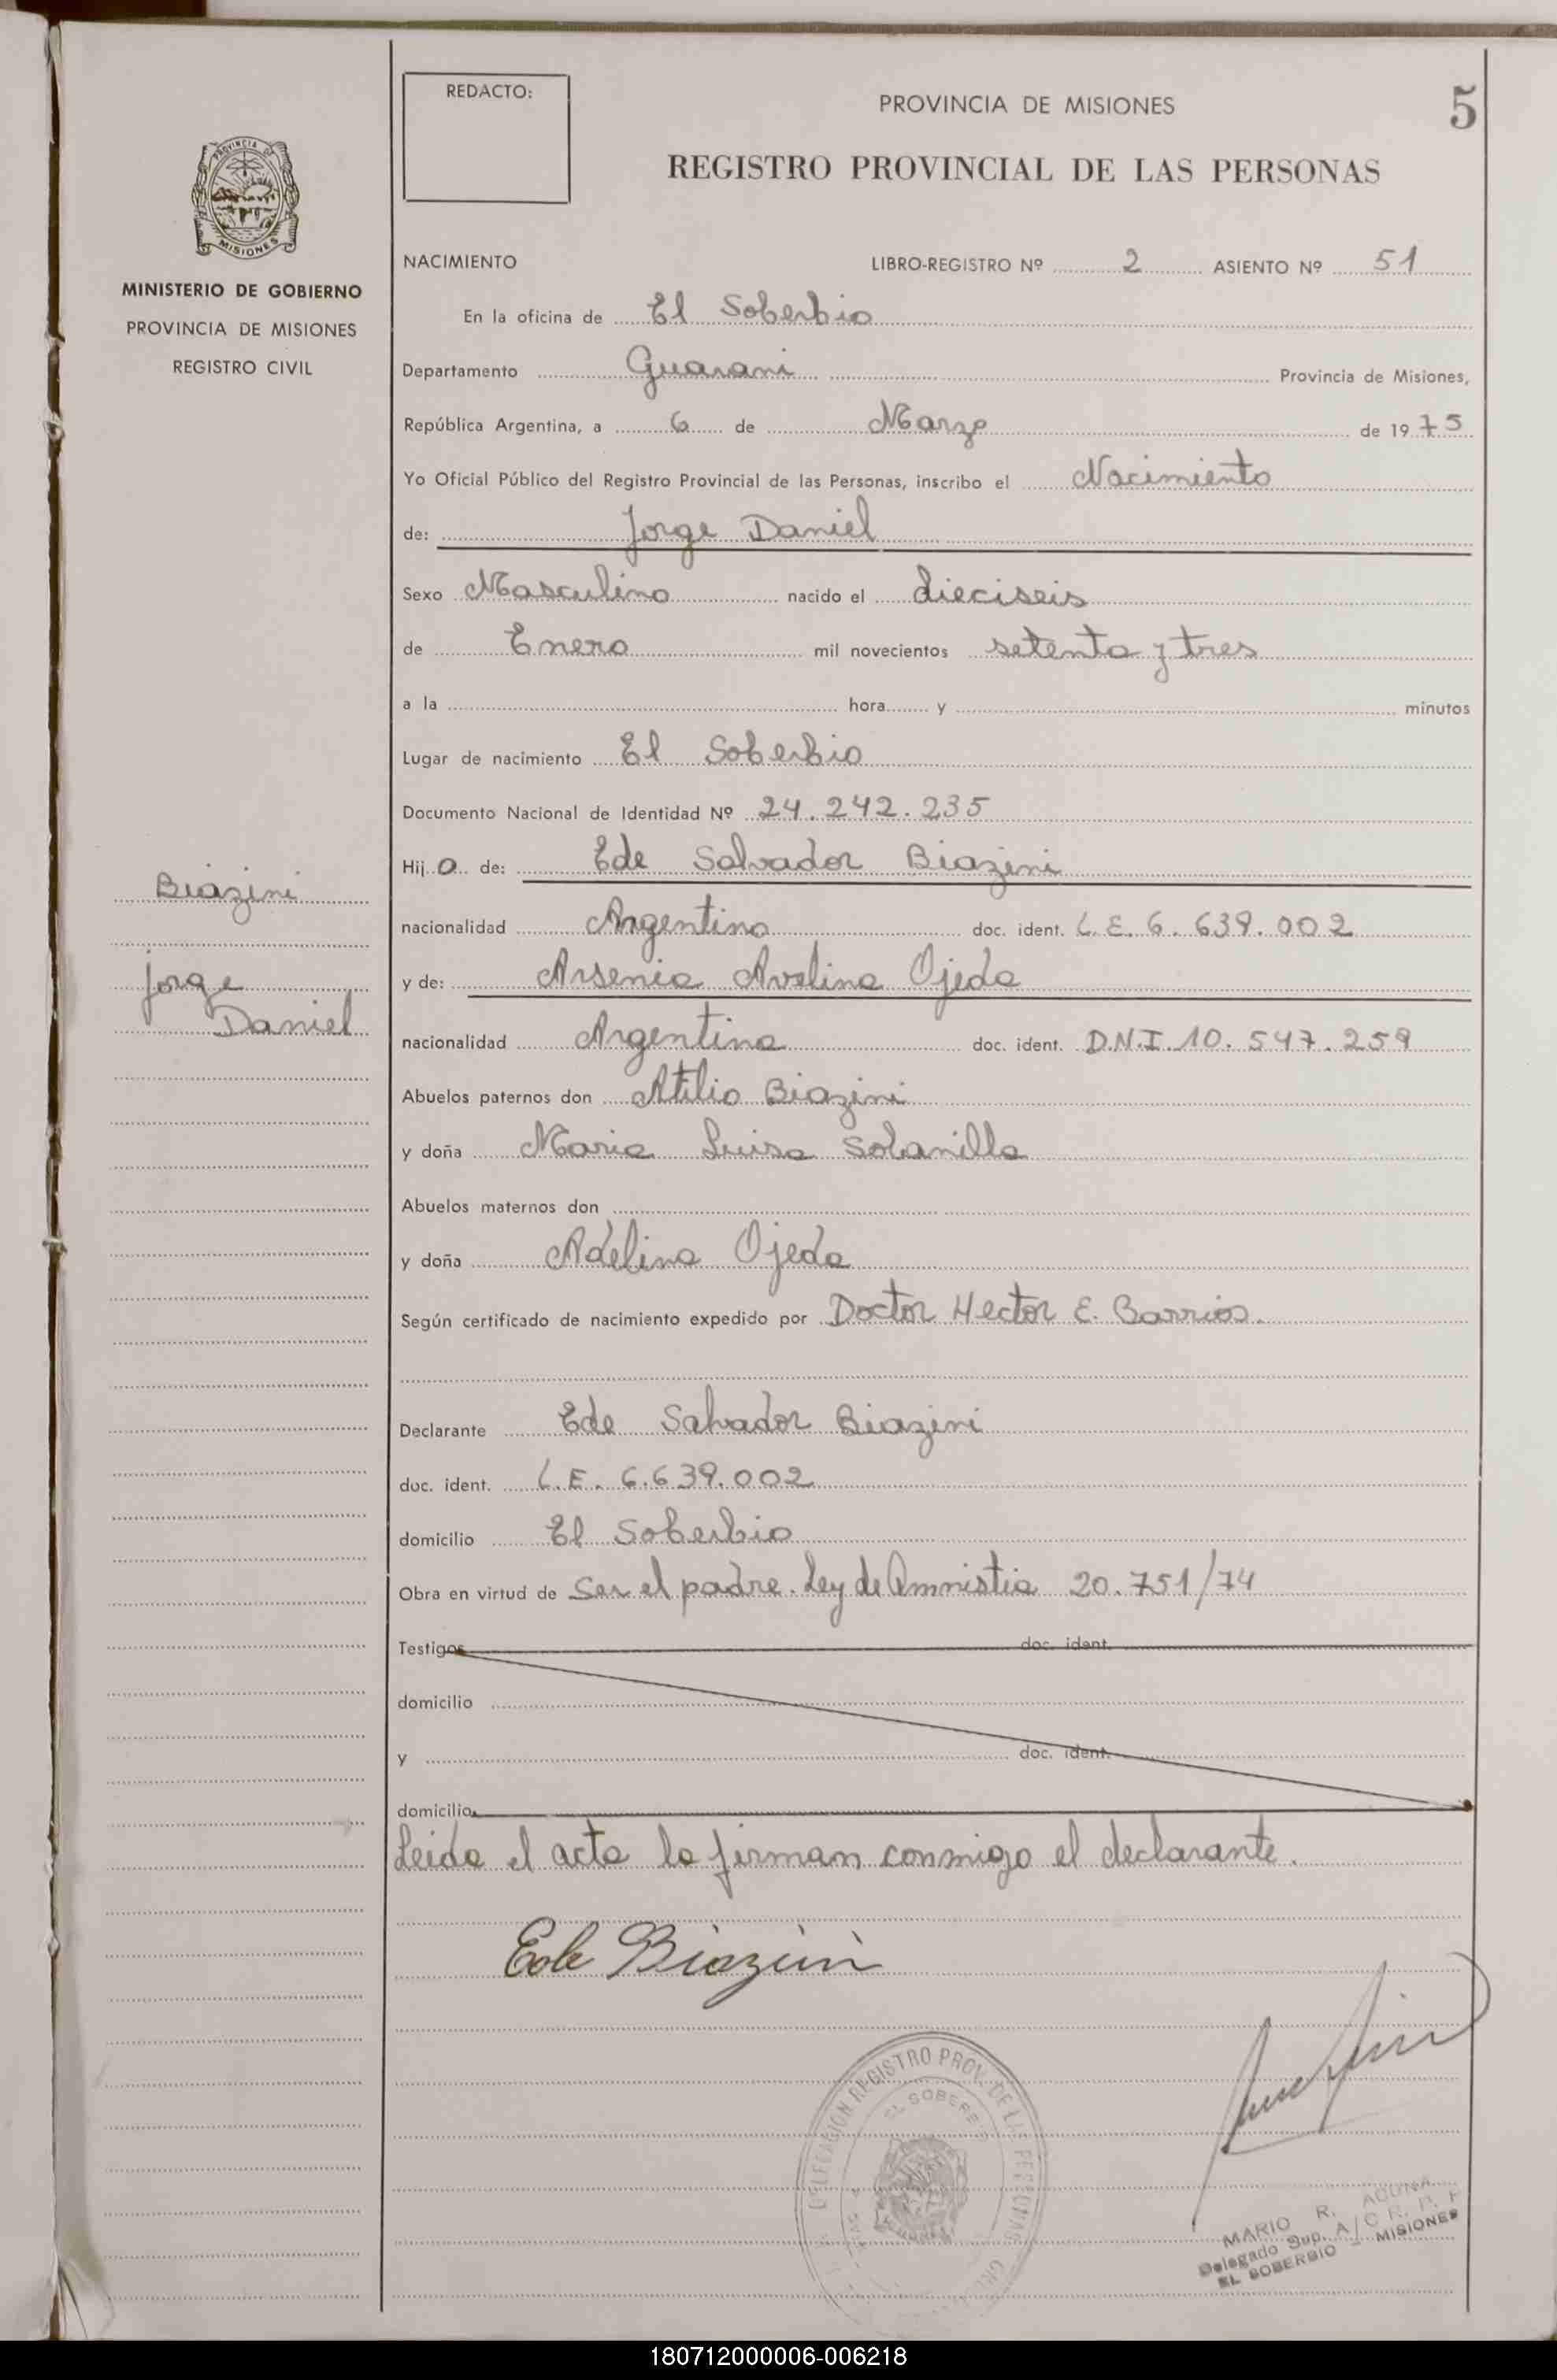 REDACTO:
PROVINCIA DE MISIONES
5
REGISTRO PROVINCIAL DE LAS PERSONAS
PROVINCIA DE
MISIONES
MINISTERIO DE GOBIERNO
PROVINCIA DE MISIONES
REGISTRO CIVIL
NACIMIENTO LIBRO-REGISTRO Nº 2 ASIENTO Nº 51
En la oficina de El Soberbio
Departamento Guarani Provincia de Misiones,
República Argentina, a 6 de Marzo de 1975
Yo Oficial Público del Registro Provincial de las Personas, inscribo el Nacimiento
de: Jorge Daniel
Sexo Masculino nacido el dieciseis
de Enero mil novecientos setenta y tres
a la hora y minutos
Lugar de nacimiento El Soberbio
Documento Nacional de Identidad Nº 24.242.235
Hijo de: Ede Salvador Biazini
nacionalidad Argentino doc. ident. L.E. 6.639.002
y de: Arsenia Avelina Ojeda
nacionalidad Argentina doc. ident. D.N.I. 10.547.259
Abuelos paternos don Atilio Biazini
y doña Maria Luisa Solanilla
Abuelos maternos don
y doña Adelina Ojeda
Según certificado de nacimiento expedido por Doctor Hector E. Barrios.
Declarante Ede Salvador Biazini
doc. ident. L.E. 6.639.002
domicilio El Soberbio
Obra en virtud de Ser el padre. Ley de Amnistia 20.751/74
Testigos doc. ident.
domicilio
y doc. ident.
domicilio
Leida el acta la firman conmigo el declarante.
Biazini
Jorge
Daniel
Ede Biazini
DELEGACION REGISTRO PROV. DE LAS PERSONAS
EL SOBERBIO
MARIO R. ACUÑA
Delegado Sup. A/C R. P. P
EL SOBERBIO - MISIONES
180712000006-006218